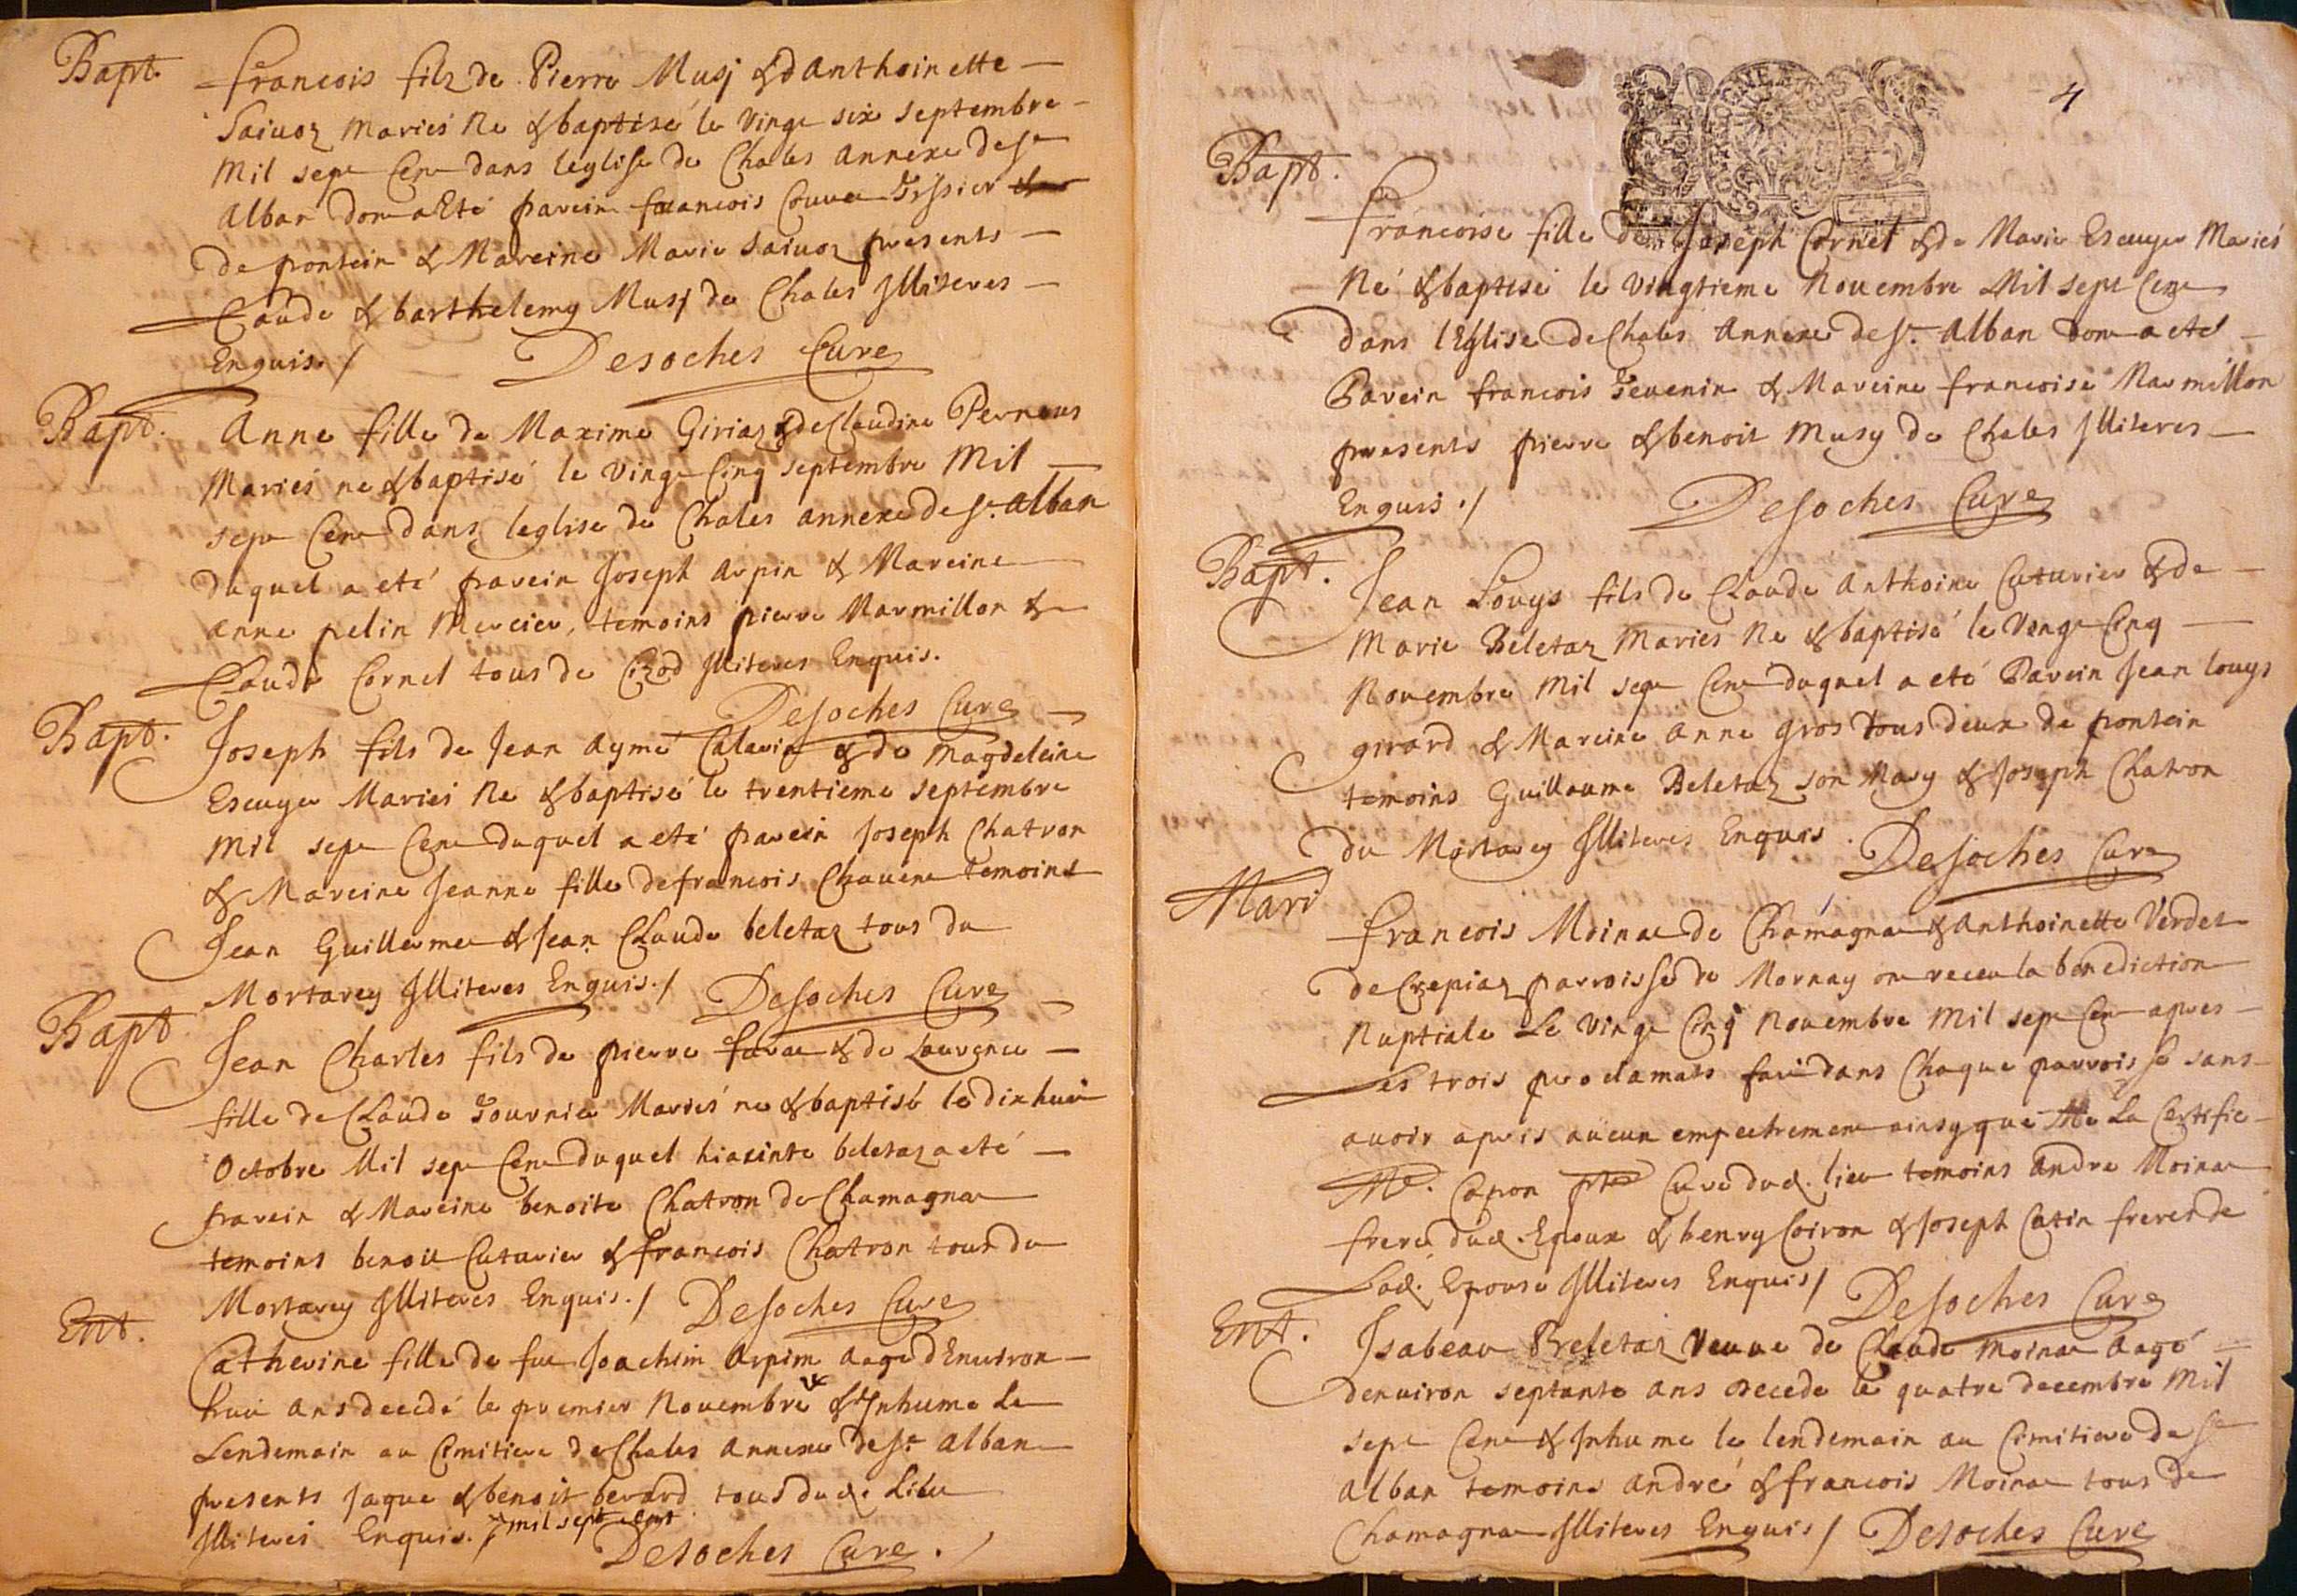 Bapt. francois filz de Pierre Musj & d anthoinette
Saiuoz Mariés Ne & baptisé le vingt six septembre
Mil sept Cent dans leglise de Chales annexe de st
alban dont a Eté parein francois
de pontein & Mareine Marie Saiuoz presents
Claude & barthelemy Musj de Chales Illiteres
Enquis. /
Desoches Cure
Bapt. Anne fille de Maxime Giriaz & de Claudine Perneus
Mariés ne & baptisé le vingt Cinq septembre Mil
sept Cent dans leglise de Chales annexe de st. alban
duquel a eté parein Joseph arpin & Mareine
anne pelin Mercier, temoins pierre Marmillon &
Claude Cornet tous de Cizod Illiteres Enquis.
Desoches Cure
Bapt. Joseph fils de Jean Aymé & de Magdeleine
Escuyer Mariés Ne & baptisé le trentieme septembre
Mil sept Cent duquel a eté parein Joseph Chatron
& Mareine Jeanne fille de francois temoins
Jean Guillerme & Jean Claude beletaz tous du
Mortarey Illiteres Enquis. /
Desoches Cure
Bapt Jean Charles fils de pierre & de Laurence
fille de Claude Tournie Mariés ne & baptisé le dixhuit
Octobre Mil sept Cent duquel hiacinte beletaz a eté
parein & Mareine benoite Chatron de Chamagnat
temoins benoit Cuturier & francois Chatron tous du
Mortarey Illiteres Enquis. / Desoches Cure
Ent. Catherine fille de fut Joachim Arpim aage d Environ
huit ans decedé le premier Nouembre & Inhume Le
Lendemain au Cimitiere de Chales annexe de st alban
presents Jaque & benoit berard tous dud. Lieu
Illiteres Enquis. / mil sept cent
Desoches Cure. /
4
Bapt. francoise fille de Joseph Cornet & de Marie Escuyer Mariés
Né & baptisé le vingtieme Nouembre Mil sept Cent
dans lEglise de Chales Annexe de st. Alban dont a eté
Parein francois Teuenin & Mareine francoise Marmillon
presents pierre & benoit Musy de Chales Illiteres
Enquis. / Desoches Cure
Bapt. Jean Louys fils de Claude Anthoine Cuturier & de
Marie Beletaz Mariés Ne & baptisé le vingt Cinq
Nouembre Mil sept Cent duquel a eté Parein Jean louys
girard & Mareine anne gros tous deux de pontein
temoins Guillaume Beletaz son Mary & Joseph Chatron
du Mortarey Illiteres Enquis. Desoches Cure
Mari francois Moinat de Chamagnat & anthoinette Verdet
de Crepiaz parroisse de Mornay ont receu la benediction
Nuptiale Le vingt Cinq Nouembre Mil sept Cent apres
Les trois proclamats fait dans Chaque parroisse sans
auoir apris aucun empechement ainsy que Me La Certifie
Me. Capon ptre Cure dud. lieu temoins andre Moinat
frere dud. Epoux & henry Coiron & Joseph Catin freres de
Lad. Epouse Illiteres Enquis / Desoches Cure
Ent. Isabeau Beletaz Veuue de Claude Moinat aagé
denuiron septante ans decede le quatre decembre Mil
sept Cent & Inhume le lendemain au Cimitiere de st
alban temoins andré & francois Moinat tous de
Chamagnat Illiteres Enquis / Desoches Cure